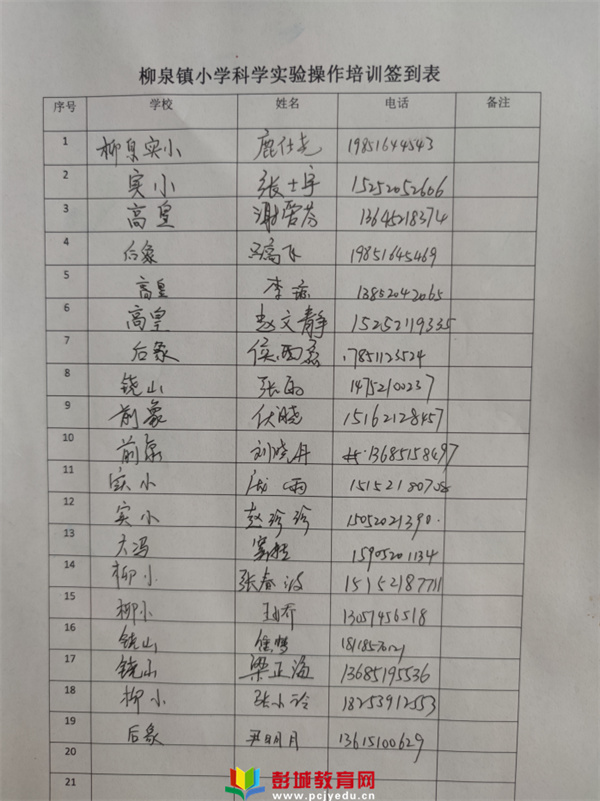 柳泉镇小学科学实验操作培训签到表
序号 学校 姓名 电话 备注
1 柳泉实小 鹿仕尧 19851644543
2 实小 张士宇 15252052606
3 高皇 谢雪芬 13645218374
4 后象 飞 19851645469
5 高皇 李 13852042065
6 高皇 赵文静 15252119335
7 后象 侯西 17851123524
8 铙山 张雨 14752100237
9 前象 伏晓 15162128457
10 前象 刘晓丹 13685158497
11 实小 雨 151521807
12 实小 赵珍珍 15052021390
13 大冯 15905201134
14 柳小 张春波 15152187711
15 柳小 乔 13051456518
16 铙山 梦
17 铙山 梁正海 13685195536
18 柳小 张小玲 18253912553
19 后象 尹明月 13615100629
20
21
彭城教育网
www.pcjyedu.cn